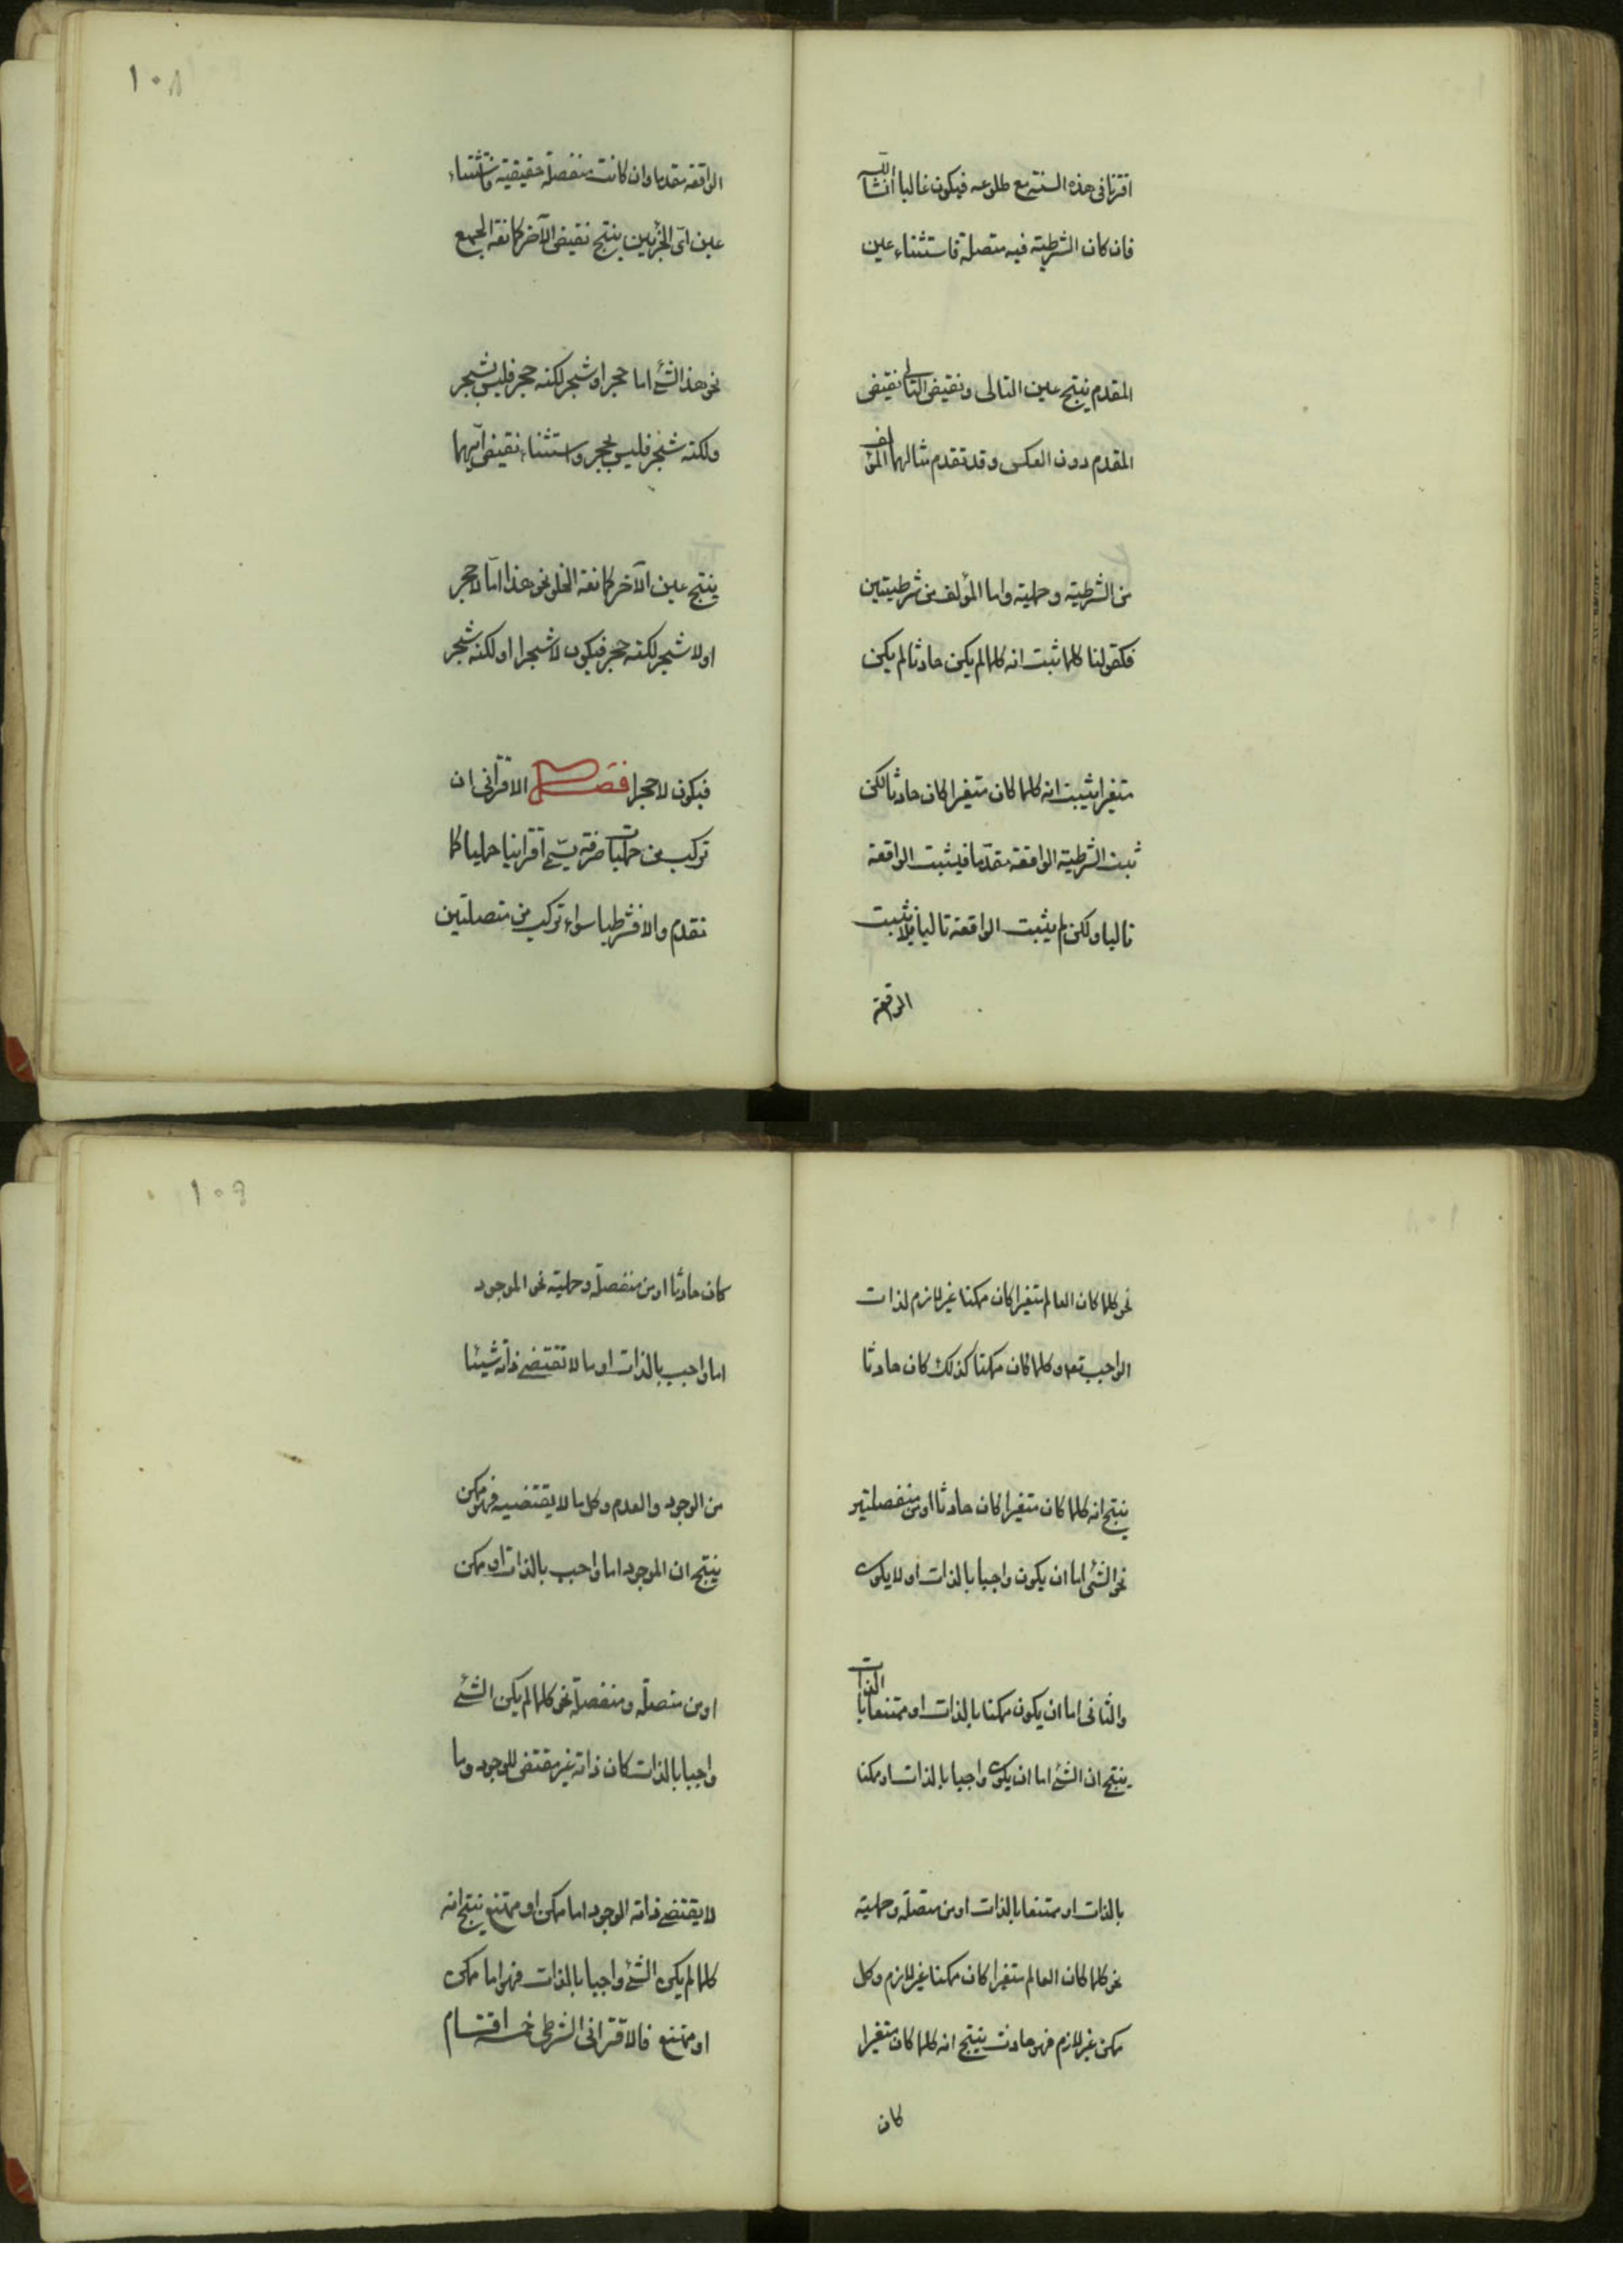 اقترنا فى هذه السنة مع طلوعه فيكون غالبا انشاء الله
فان كان الشرطية فيه متصلة فاستثناء عين
المقدم ينتج عين التالى ونقيض التالى نقيض
المقدم دون العكس وقد تقدم مثالهما المؤلف
من الشرطية وحملية واما المؤلف من شرطيتين
فكقولنا كلما ثبت انه كلما لم يكن حادثا لم يكن
متغيرا يثبت انه كلما كان متغيرا كان حادثا لكن
ثبت الشرطية الواقعة مقدما فيثبت الواقعة
تاليا ولكن لم يثبت الواقعة تاليا فلا يثبت
الواقعة
١٠٨
الواقعة مقدما وان كانت منفصلة حقيقية فاستثناء
عين اىّ الجزئين ينتج نقيض الآخر كمانعة الجمع
نحو هذا الشئ اما حجر او شجر لكنه حجر فليس بشجر
ولكنه شجر فليس بحجر واستثناء نقيض ايهما
ينتج عين الآخر كمانعة الخلو نحو هذا اما لا حجر
او لا شجر لكنه حجر فيكون لا شجرا او لكنه شجر
فيكون لا حجرا فصل الاقترانى ان
تركب من حمليات صرفة يسمى اقترانيا حمليا كما
تقدم والا فشرطيا سواء تركب من متصلتين
نحو كلما كان العالم متغيرا كان ممكنا غير لازم لذات
الواجب تعه وكلما كان ممكنا كذلك كان حادثا
ينتج انه كلما كان متغيرا كان حادثا او من منفصلتين
نحو الشئ اما ان يكون واجبا بالذات او لا يكون
والثانى اما ان يكون ممكنا بالذات او ممتنعا بالذات
ينتج ان الشئ اما ان يكون واجبا بالذات او ممكنا
بالذات او ممتنعا بالذات او من متصلة وحملية
نحو كلما كان العالم متغيرا كان ممكنا غير لازم وكل
ممكن غير لازم فهو حادث ينتج انه كلما كان متغيرا
كان
١٠٩
كان حادثا او من منفصلة وحملية نحو الموجود
اما واجب بالذات او ما لا تقتضى ذاته شيئا
من الوجود والعدم وكل ما لا يقتضيه فهو ممكن
ينتج ان الموجود اما واجب بالذات او ممكن
او من متصلة ومنفصلة نحو كلما لم يكن الشئ
واجبا بالذات كان ذاته غير مقتض للوجود وما
لا يقتضى ذاته الوجود اما ممكن او ممتنع ينتج انه
كلما لم يكن الشئ واجبا بالذات فهو اما ممكن
او ممتنع فالاقترانى الشرطى خمسة اقسام